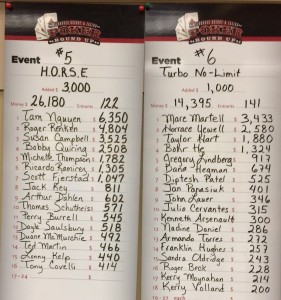 ROUND UP
Event #5
H.O.R.S.E
Added $ 3,000
Money $ 26,180 Entrants 122
1 Tam Nguyen $ 6,350
2 Roger Renken $ 4,804
3 Susan Campbell $ 3,525
4 Bobby Quiring $ 2,508
5 Michelle Thompson $ 1,782
6 Ricardo Ramires $ 1,305
7 Scott Fjerstad $ 1,047
8 Jack Key $ 811
9 Arthur Dahlen $ 602
10 Thomas Schultheis $ 571
11 Perry Burrell $ 545
12 Dayle Saulsbury $ 518
13 Duane McMurchie $ 492
14 Ted Martin $ 466
15 Lenny Kelp $ 440
16 Tony Covelli $ 414
17-24
ROUND UP
Event #6
Turbo No-Limit
Added $ 1,000
Money $ 14,395 Entrants 141
1 Marc Martell $ 3,433
2 Horrace Yewell $ 2,580
3 Taylor Hart $ 1,880
4 Bohr He $ 1,324
5 Gregory Lindberg $ 917
6 Dana Hegman $ 674
7 Diptesh Patel $ 525
8 Jan Papasiuk $ 401
9 John Lauer $ 346
10 Julia Cervantes $ 315
11 Kenneth Arsenault $ 300
12 Nadine Daniel $ 286
13 Armando Torres $ 272
14 Franklin Hughes $ 257
15 Sandra Oldridge $ 243
16 Roger Beck $ 228
17 Kerry Moynahan $ 214
18 Kerry Volland $ 200
each